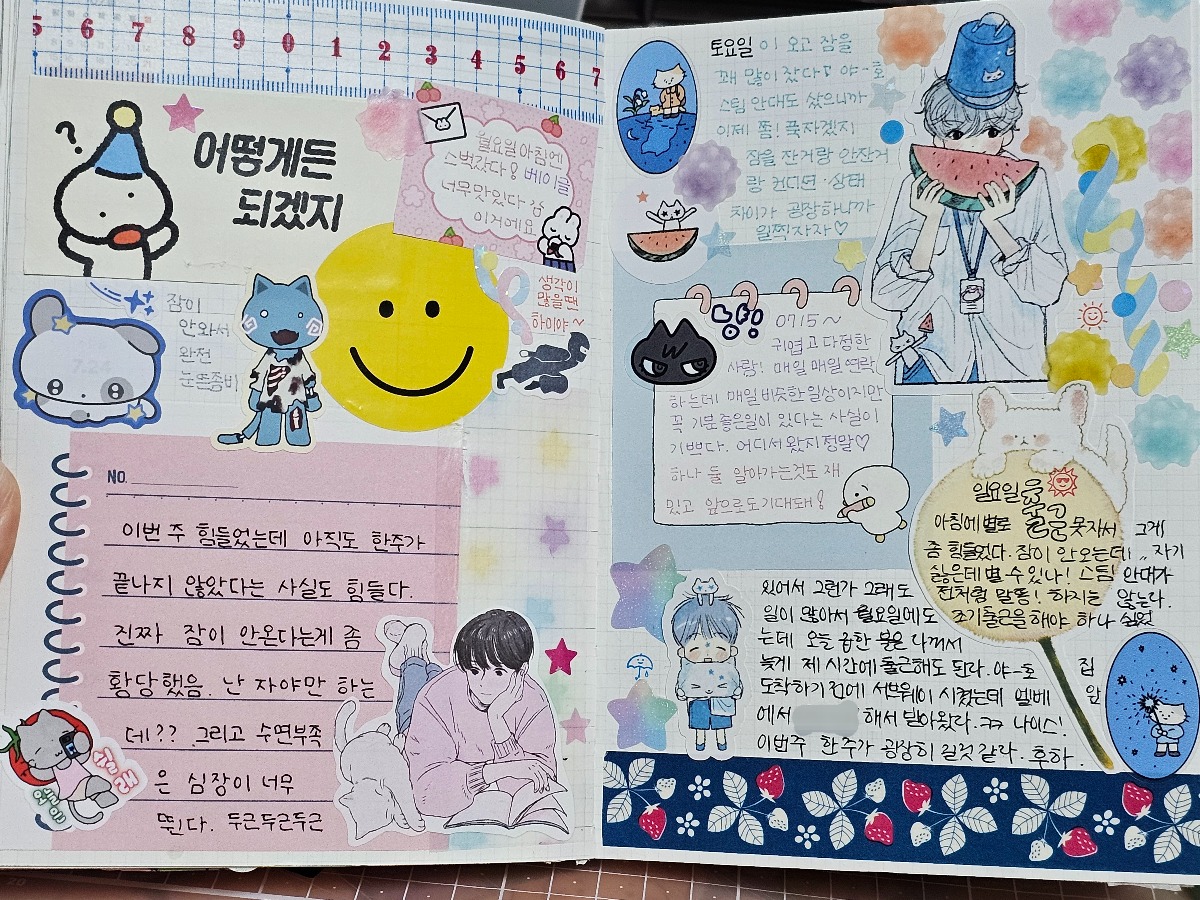 5 6 7 8 9 0 1 2 3 4 5 6 7
?
어떻게든
되겠지
월요일 아침에
스벅갔다! 베이글
너무맛있다 감
이거예요
생각이
많을땐
하미야~
잠이
안와서
완전
눈뜨좀비
7.24
NO.
이번 주 힘들었는데 아직도 한주가
끝나지 않았다는 사실도 힘들다.
진짜 잠이 안온다는게 좀
황당했음. 난 자야만 하는
데?? 그리고 수면부족
은 심장이 너무
뛴다. 두근두근두근
토요일 이 오고 잠을
꽤 많이 잤다! 야-호
스팀 안대도 샀으니까
이제 좀! 푹자겠지
잠을 잔거랑 안잔거
랑 컨디션·상태
차이가 굉장하니까
일찍자자♡
냥!!
0715~
귀엽고 다정한
사람! 매일 매일 연락
하는데! 매일 비슷한 일상이지만
꼭 기분좋은일이 있다는 사실이
기쁘다. 어디서 왔지 정말♡
하나 둘 알아가는것도 재
밌고 앞으로도기대돼!
일요일
아침에 별로 못자서 그게
좀 힘들었다. 잠이 안오는데! .. 자기
싫은데 별 수 있나! 스팀 안대가
전처럼 말똥! 하지는 않는다.
조기출근을 해야 하나 싶었
있어서 그런가 그래도
일이 많아서 월요일에도
는데 오늘 급한 불은 나꺼서
늦게 제 시간에 출근해도 된다. 야-호
집
앞
도착하기 전에 서브웨이 시켰는데 엘베
에서 해서 받아왔다. ㅋㅋ 나이스!
이번주 한주가 굉장히 길것 같다. 후하.